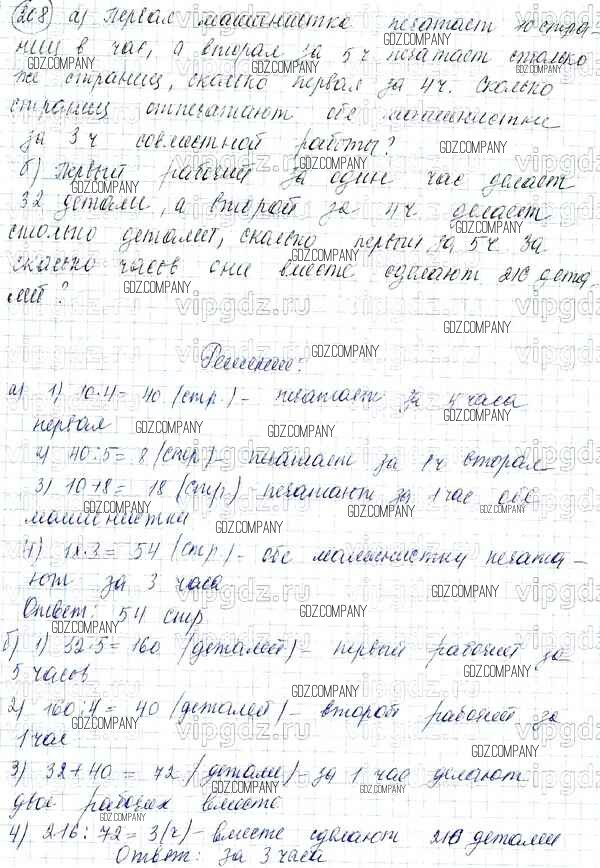 208 а) Первая машинистка печатает 10 стра-
ниц в час, а вторая за 5 ч печатает столько
же страниц, сколько первая за 4 ч. Сколько
страниц отпечатают обе машинистки
за 3 ч совместной работы?
б) Первый рабочий за один час делает
32 детали, а второй за 4 ч делает
столько деталей, сколько первый за 5 ч. За
сколько часов они вместе сделают 216 дета-
лей?
Решение:
а) 1) 10·4= 40 (стр.) - печатает за 4 часа
первая
2) 40:5= 8 (стр) - печатает за 1 ч вторая
3) 10+8= 18 (стр) - печатают за 1 час обе
машинистки
4) 18·3= 54 (стр) - обе машинистки печата-
ют за 3 часа
Ответ: 54 стр
б) 1) 32·5= 160 (деталей) - первый рабочий за
5 часов
2) 160:4= 40 (деталей) - второй рабочий за
1 час
3) 32+40 = 72 (детали) - за 1 час делают
двое рабочих вместе
4) 216:72=3(ч) - вместе сделают 216 деталей
Ответ: за 3 часа
GDZ.COMPANY
vipgdz.ru